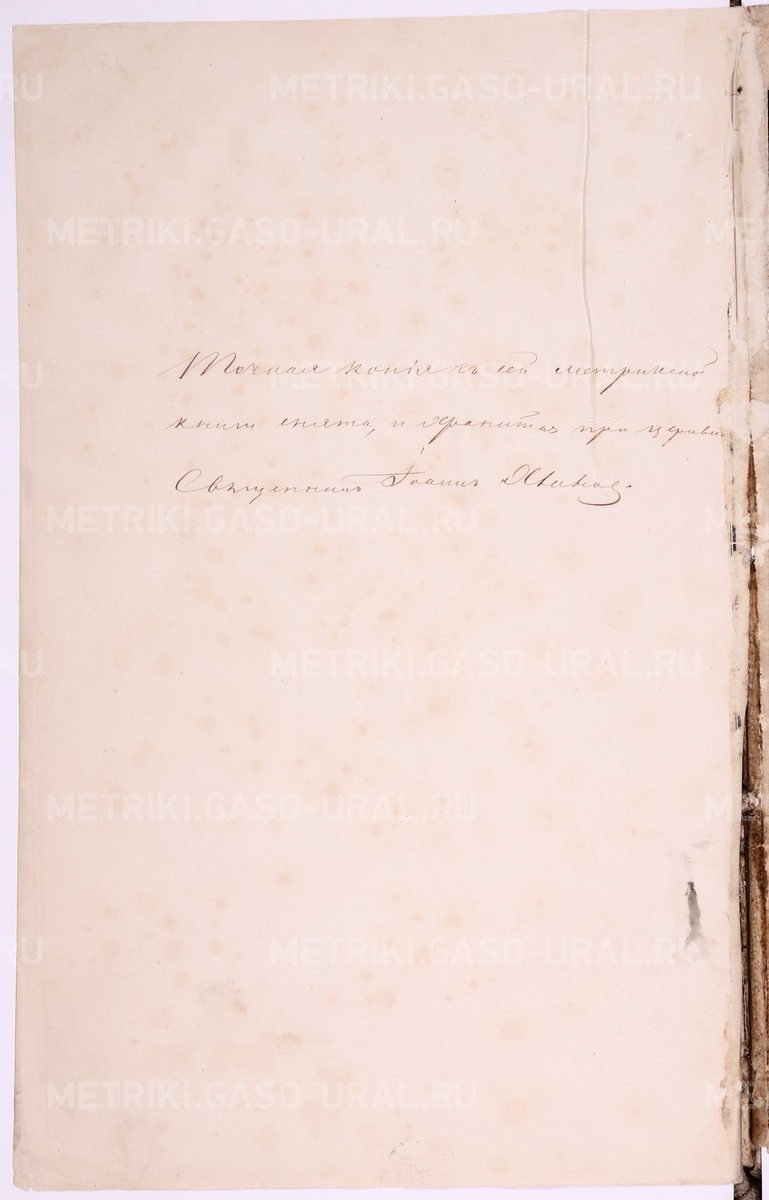 METRIKI.GASO-URAL.RU
METRIKI.GASO-URAL.RU
Точная копія къ сей метрической
книги снята, и хранится при церкви
Священникъ Іоаннъ
METRIKI.GASO-URAL.RU
METRIKI.GASO-URAL.RU
METRIKI.GASO-URAL.RU
METRIKI.GASO-URAL.RU
METRIKI.GASO-URAL.RU